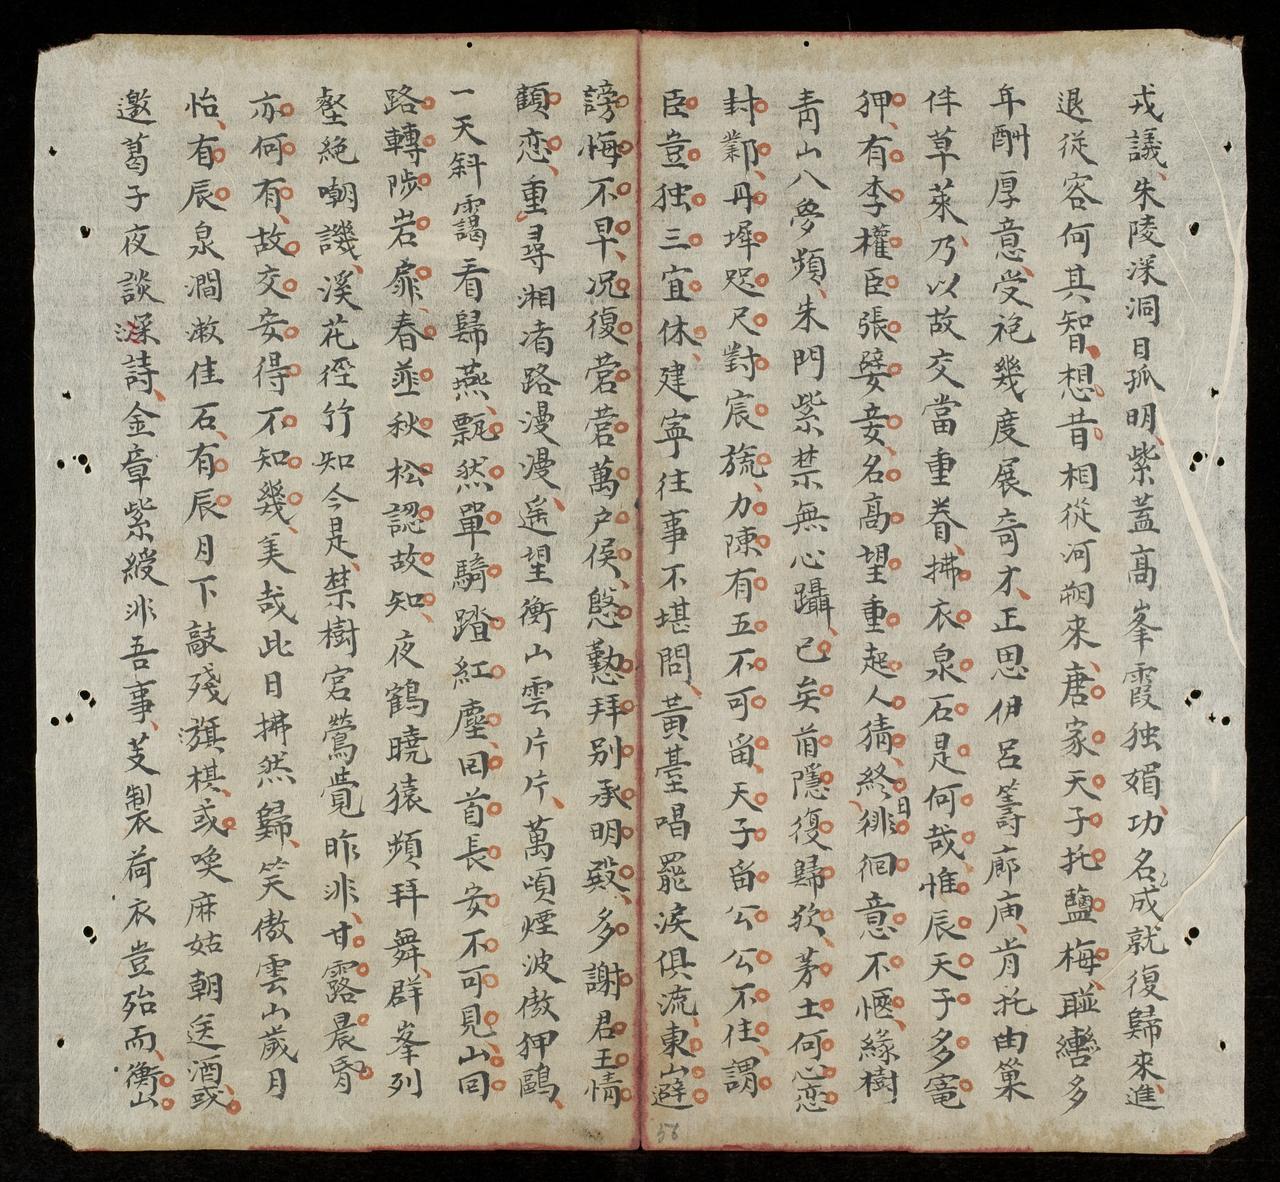 戎議朱陵深洞日孤明紫蓋高峯霞独媚功名成就復歸來進
退從容何其知想昔相從河朔來唐家天子托鹽梅聯轡多
年酬厚意受袍幾度展奇才正思伊呂籌廊庙肯托由巢
伴草萊乃以故交當重眷拂衣泉石是何哉惟辰天子多寵
狎有李權臣張嬖妾名高望重起人猜終日徘徊意不愜緣樹
青山入夢頻朱門紫禁無心躡已矣甫隱復歸欤茅土何心恋
封鄴丹墀咫尺對宸旒力陳有五不可留天子留公公不住謂
臣豈独三宜休建寧往事不堪問黃臺唱罷淚俱流東山避
謗悔不早况復營營萬户侯慇懃拜别承明殿多謝君王情
顧恋重尋湘渚路漫漫遥望衡山雲片片萬頃煙波傲狎鷗
一天斜靄看歸燕飄然單騎踏紅塵囘首長安不可見山囘
路轉陟岩扉春韮秋松認故知夜鶴曉猿頻拜舞群峯列
壑絶嘲譏溪花徑竹知今是禁樹宮鶯覺昨非甘露晨霄
亦何有故交安得不知幾美哉此日拂然歸笑傲雲山歲月
怡有辰泉澗漱佳石有辰月下敲殘棋或喚麻姑朝送酒或
邀葛子夜談詩金章紫綬非吾事芰製荷衣豈殆而衡山
58